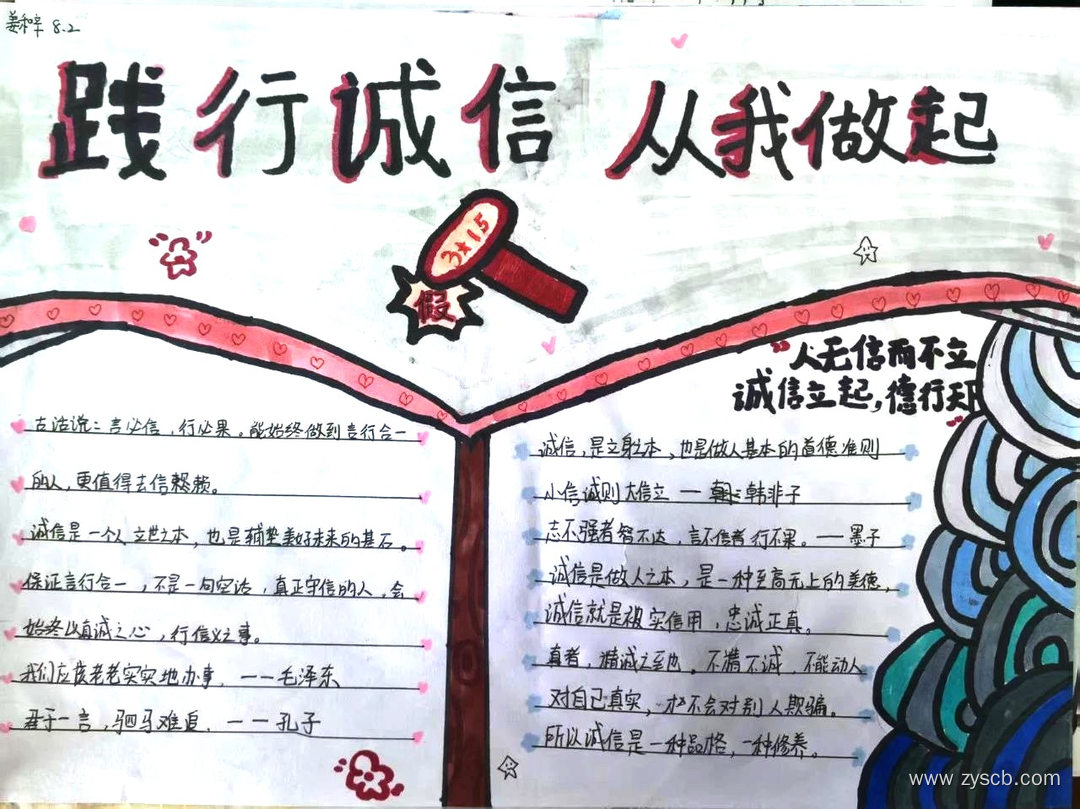 姜和辛 8.2
践行诚信 从我做起
3★15
假
人无信而不立
诚信立起,德行天
古话说:言必信,行必果。能始终做到言行合一
的人,更值得去信赖。
诚信是一个人立世之本,也是铺垫美好未来的基石。
保证言行合一,不是一句空话,真正守信的人,会
始终以真诚之心,行信义之事。
我们应该老老实实地办事。——毛泽东
君子一言,驷马难追。——孔子
诚信,是立身之本,也是做人基本的道德准则
小信诚则大信立 — 韩非子
志不强者智不达,言不信者行不果。——墨子
诚信是做人之本,是一种至高无上的美德,
诚信就是被实信用,忠诚正真。
真者,精诚之至也。不精不诚,不能动人
对自己真实,才不会对别人欺骗。
所以诚信是一种品格,一种修养。
www.zyscb.com